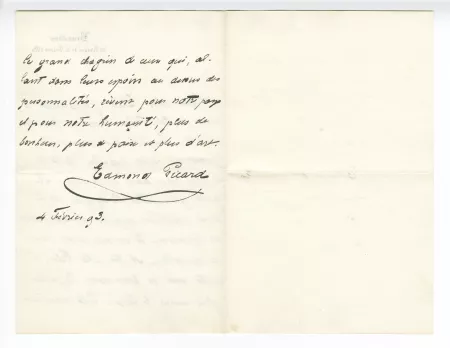 le grand chagrin de ceux qui, al-
lant dans leurs espoirs au dessus des
personnalités, rêvent pour notre pays
et pour notre humanité, plus de
bonheur, plus de paix et plus d'art.
Edmond Picard
4 Février 93.